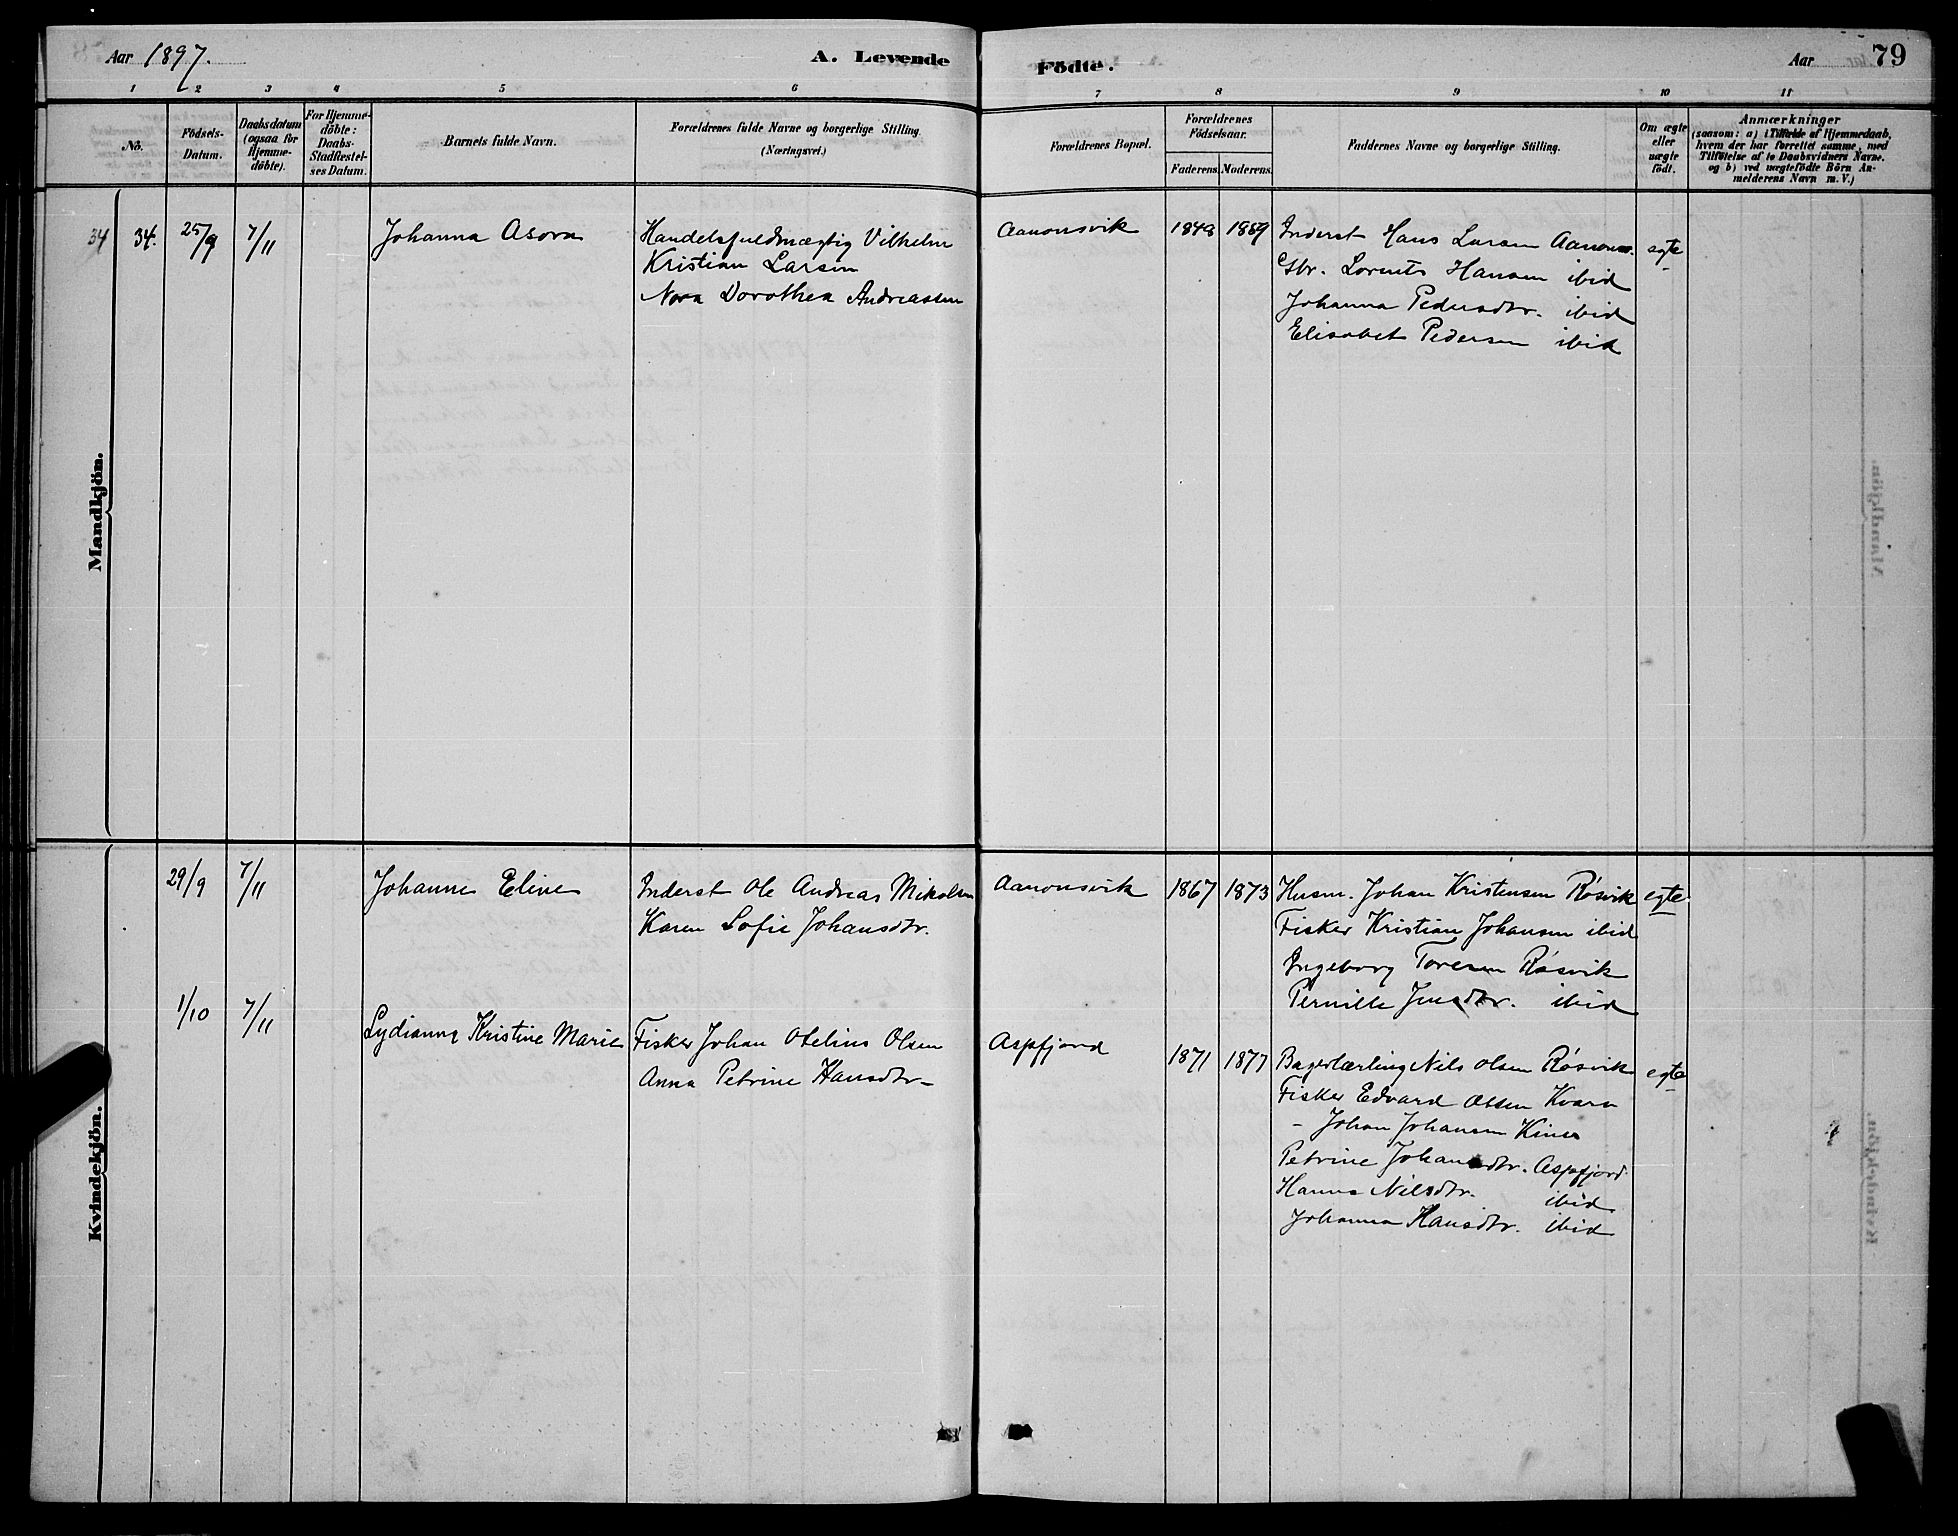 Aar 1897.
A. Levende
Födte.
Aar
79
1 2 3 4 5 6 7 8 9 10 11
No.
Födsels-
Datum.
Daabsdatum
(ogsaa for
Hjemme-
döbte).
For Hjemme-
döbte:
Daabs-
Stadfæstel-
ses Datum.
Barnets fulde Navn.
Forældrenes fulde Navne og borgerlige Stilling.
(Næringsvei.)
Forældrenes Bopæl.
Forældrenes
Födselsaar.
Faderens. Moderens.
Faddernes Navne og borgerlige Stilling.
Om ægte
eller
uægte
födt.
Anmærkninger
(saasom: a) i Tilfælde af Hjemmedaab,
hvem der har forrettet samme, med
Tilföielse af to Daabsvidners Navne.
og b) ved uægtefödte Börn An-
melderens Navn m. V.)
Mandkjön.
34 34. 25/9 7/11
Johanna Asora
Handelsfuldmægtig Vilhelm
Kristian Larsen
Nora Dorothea Andreassen
Aanonsvik
1848 1889
Inderst Hans Larsen Aanonsv.
Gbr. Lorents Hansen ibid
Johanna Pedersdtr. ibid
Elisabet Pedersen ibid
egte
Kvindekjön.
29/9 7/11
Johanne Eline
Inderst Ole Andreas Mikalsen
Karen Sofie Johansdtr.
Aanonsvik
1867 1873
Husm. Johan Kristensen Røsvik
Fisker Kristian Johansen ibid
Ingeborg Toresen Røsvik
Pernille Jensdtr. ibid
egte
1/10 7/11
Lydianna Kristine Marie
Fisker Johan Otelius Olsen
Anna Petrine Hansdtr
Aspfjord
1871 1877
Bagerlærling Nils Olsen Røsvik
Fisker Edvard Olsen Kvarv
- Johan Johansen Kines
Petrine Johansdtr. Aspfjord
Hanna Nilsdtr. ibid
Johanna Hansdtr. ibid
egte